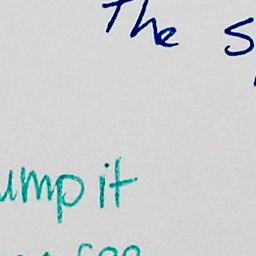 The s
ump it